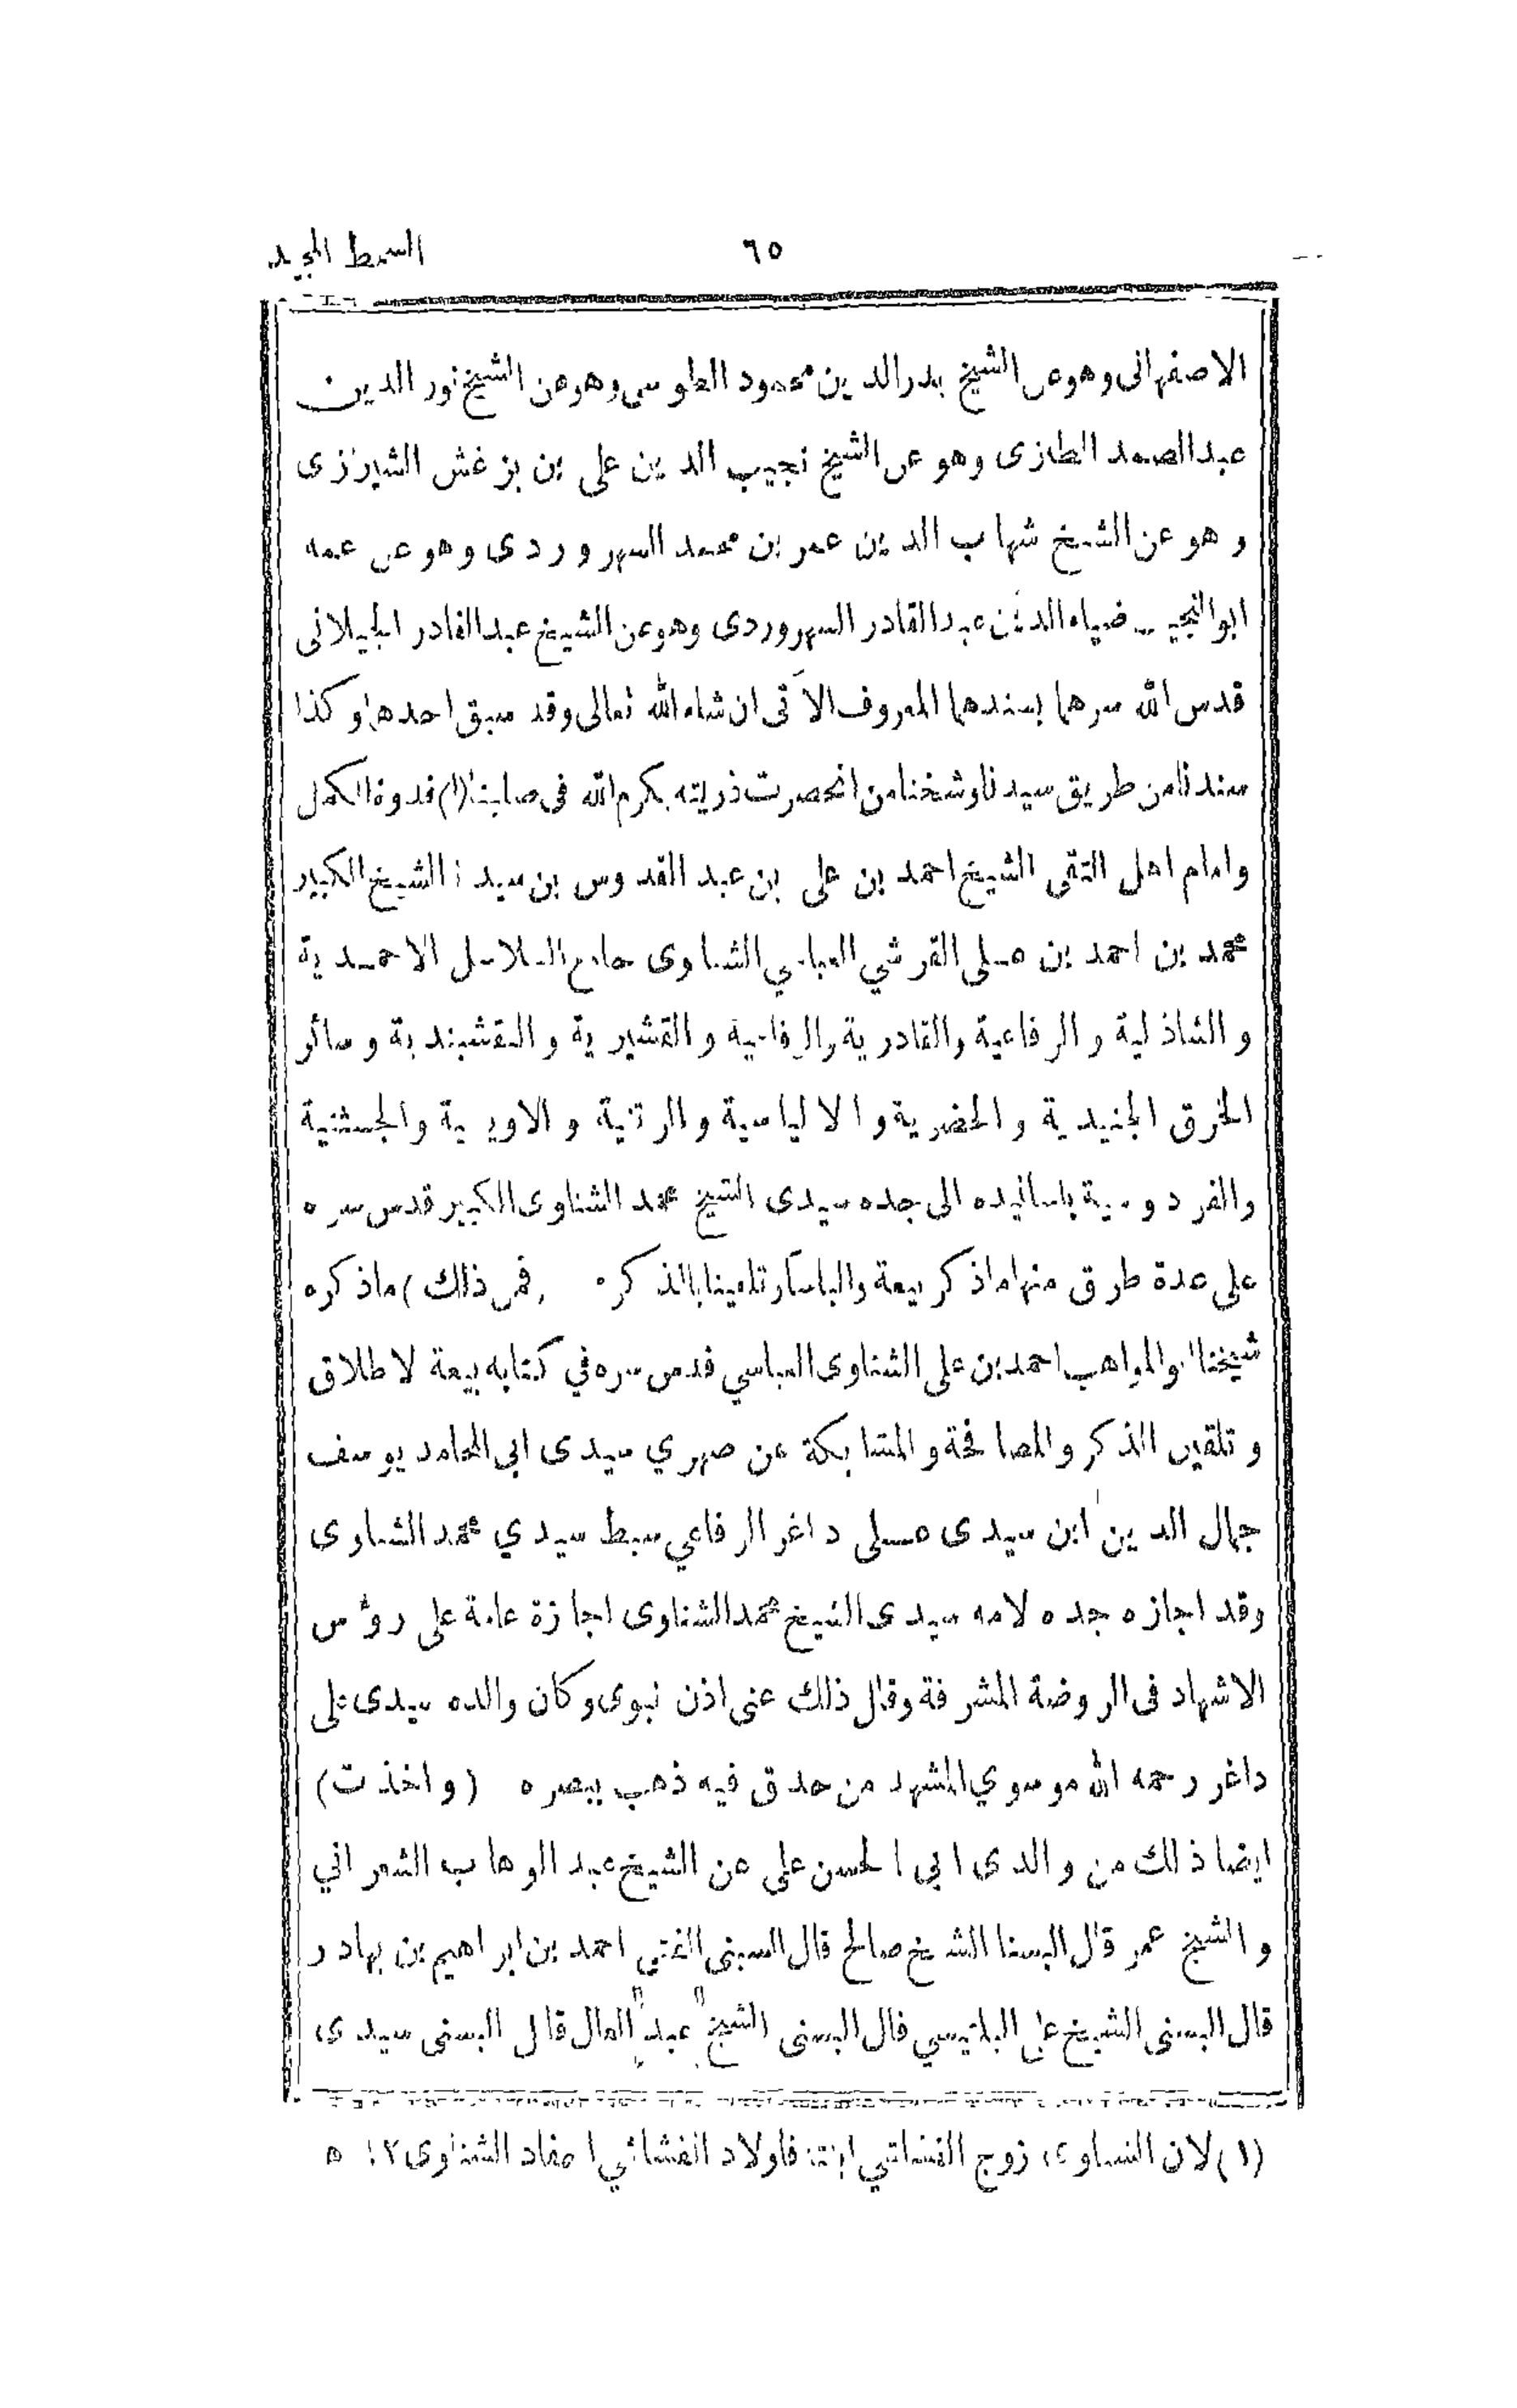 السمط المجيد
٦٥
الاصفهانى وهو عن الشيخ بدر الدين محمود الطوسى وهو عن الشيخ نور الدين
عبد الصمد النطنزى وهو عن الشيخ نجيب الدين على بن بزغش الشيرازى
وهو عن الشيخ شهاب الدين عمر بن محمد السهروردى وهو عن عمه
ابو النجيب ضياء الدين عبد القادر السهروردى وهو عن الشيخ عبد القادر الجيلانى
قدس الله سرهما بسندهما المعروف الآتى ان شاء الله تعالى وقد سبق احدهما وكذا
سندنا من طريق سيدنا وشيخنا من انحصرت ذريته بكرم الله فى صلبنا (١) قدوة الكمل
وامام اهل التقى الشيخ احمد بن على بن عبد القدوس بن سيدنا الشيخ الكبير
محمد بن احمد بن على القرشي العباسي الشناوى جامع السلاسل الاحمدية
والشاذلية والرفاعية والقادرية والقشيرية والنقشبندية وسائر
الخرق الجنيدية والخضرية والالياسية والاويسية والجشتية
والفردوسية باسانيده الى جده سيدى الشيخ محمد الشناوى الكبير قدس سره
على عدة طرق منها ماذكر بيعة والباسا وتلقينا بالذكر (فمن ذلك) ماذكره
شيخنا ابو المواهب احمد بن على الشناوى العباسي قدس سره في كتابه بيعة الاطلاق
وتلقين الذكر والمصافحة والمشابكة عن صهري سيدى ابي المحامد يوسف
جمال الدين ابن سيدى على داغر الرفاعي سبط سيدي محمد الشناوى
وقد اجازه جده لامه سيدى الشيخ محمد الشناوى اجازة عامة على رؤس
الاشهاد فى الروضة المشرفة وقال ذلك عنى اذن نبوى وكان والده سيدى على
داغر رحمه الله موسوي المشهد من حدق فيه ذهب ببصره (واخذت)
ايضا ذلك من والدى ابي الحسن على عن الشيخ عبد الوهاب الشعراني
والشيخ عمر قال البسنا الشيخ صالح قال البسنى الفتى احمد بن ابراهيم بن بهادر
قال البسنى الشيخ على البلتيسي قال البسنى الشيخ عبد العال قال البسنى سيدى
(١) لان الشناوى زوج القشاشي ابنته فاولاد القشاشي احفاد الشناوى ١٢